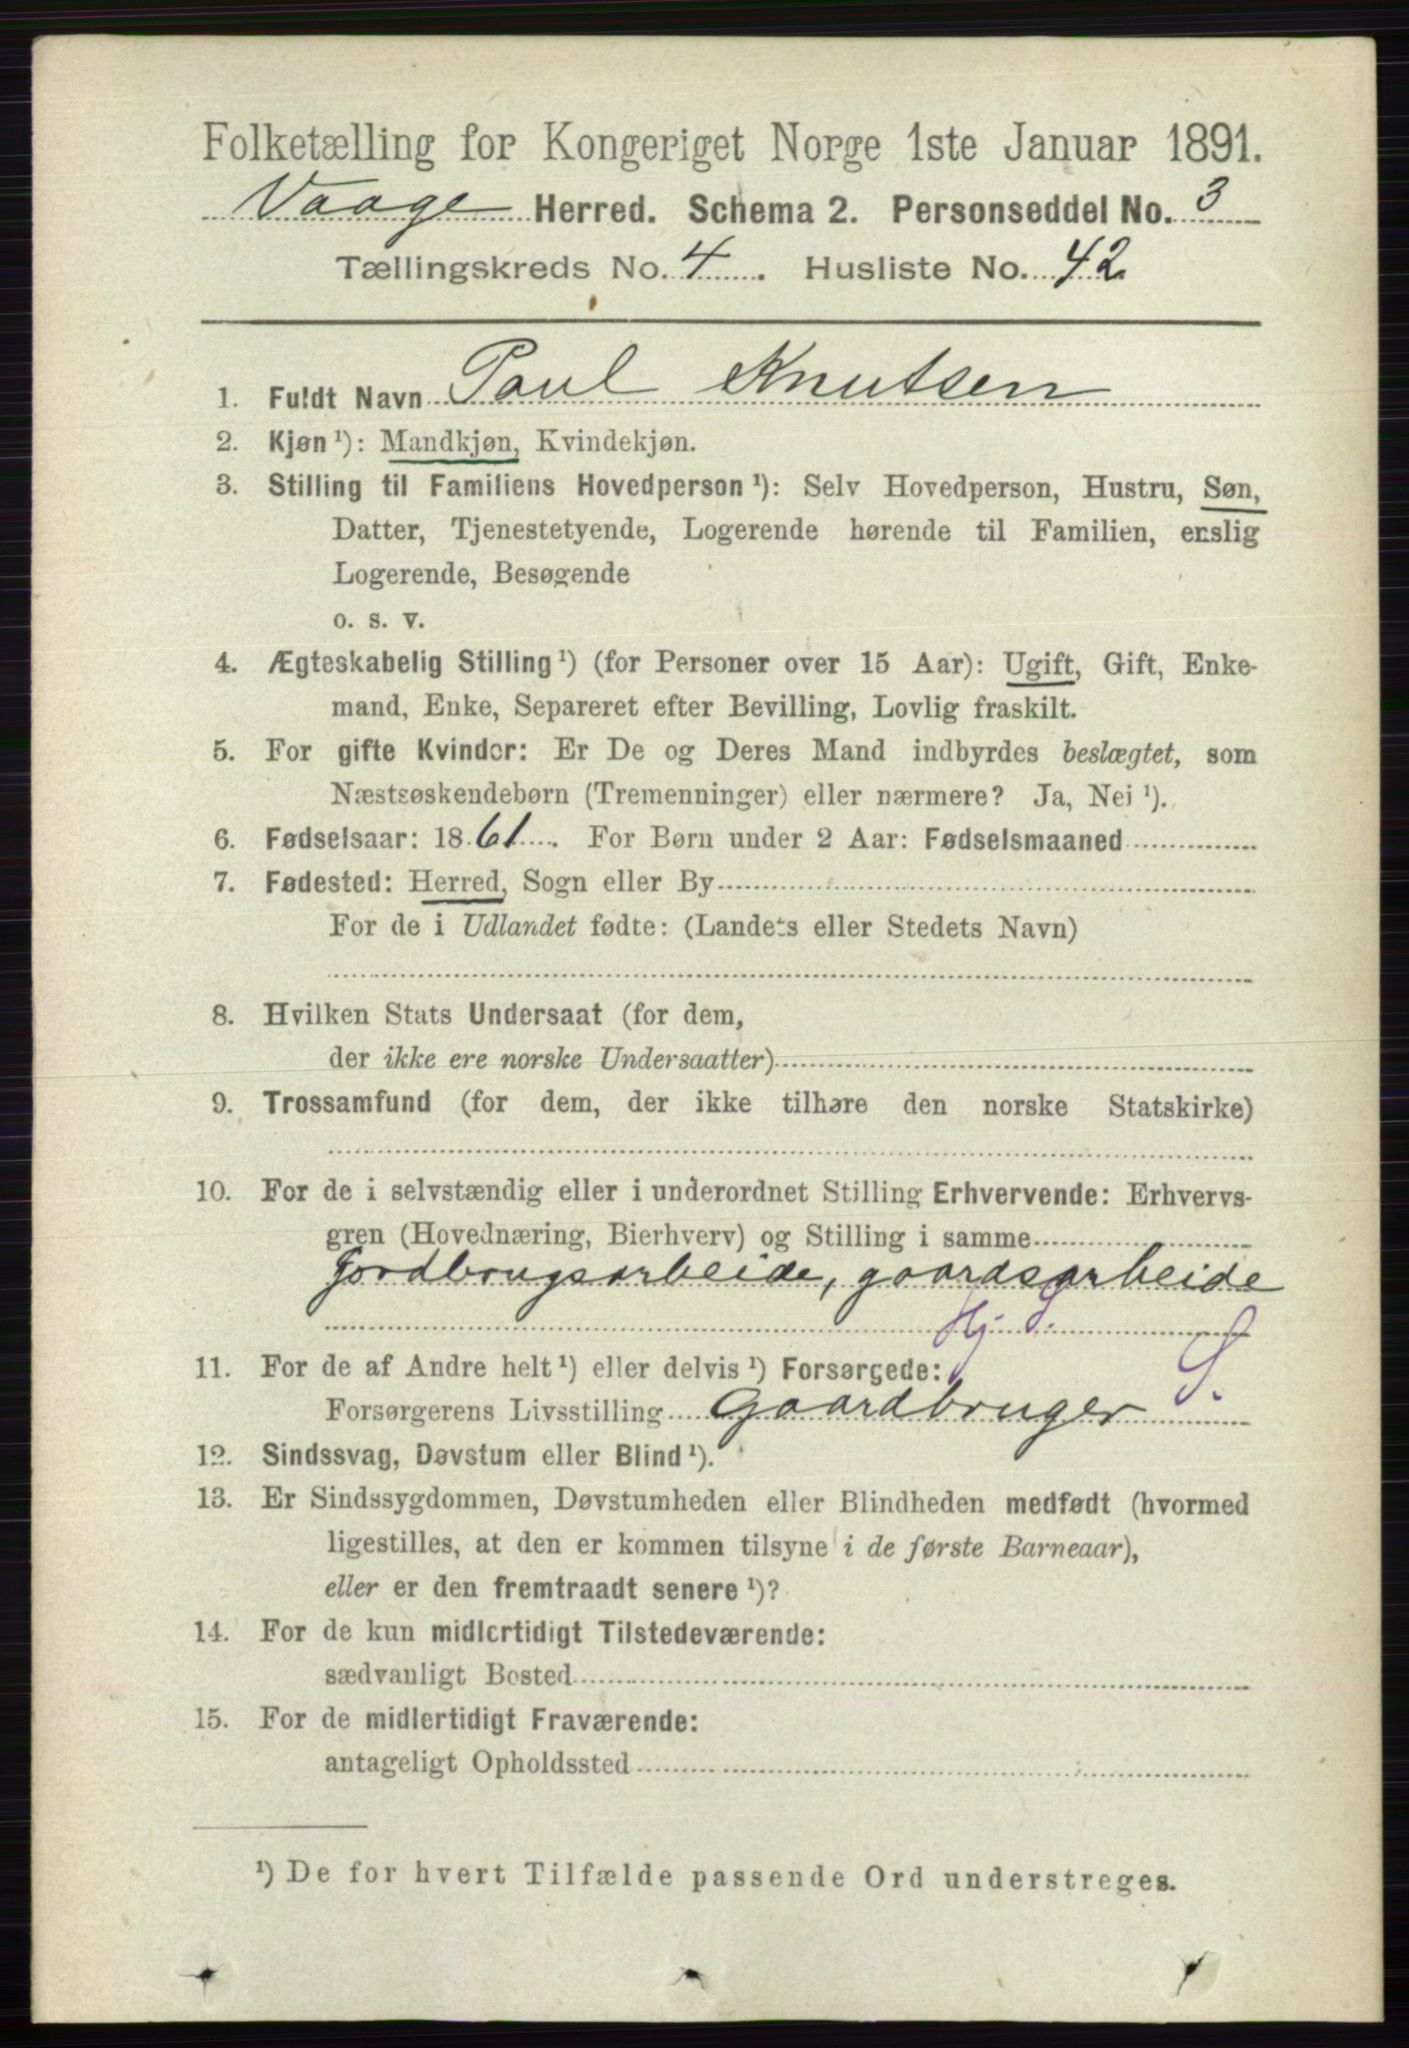 Folketælling for Kongeriget Norge 1ste Januar 1891.
Vaage Herred. Schema 2. Personseddel No. 3
Tællingskreds No. 4. Husliste No. 42
1. Fuldt Navn Paul Knutsen
2. Kjøn ¹): Mandkjøn, Kvindekjøn.
3. Stilling til Familiens Hovedperson ¹): Selv Hovedperson, Hustru, Søn,
Datter, Tjenestetyende, Logerende hørende til Familien, enslig
Logerende, Besøgende
o. s. v.
4. Ægteskabelig Stilling ¹) (for Personer over 15 Aar): Ugift, Gift, Enke-
mand, Enke, Separeret efter Bevilling, Lovlig fraskilt.
5. For gifte Kvinder: Er De og Deres Mand indbyrdes beslægtet, som
Næstsøskendebørn (Tremenninger) eller nærmere? Ja, Nei ¹).
6. Fødselsaar: 1861. For Børn under 2 Aar: Fødselsmaaned
7. Fødested: Herred, Sogn eller By
For de i Udlandet fødte: (Landets eller Stedets Navn)
8. Hvilken Stats Undersaat (for dem,
der ikke ere norske Undersaatter)
9. Trossamfund (for dem, der ikke tilhøre den norske Statskirke)
10. For de i selvstændig eller i underordnet Stilling Erhvervende: Erhvervs-
gren (Hovednæring, Bierhverv) og Stilling i samme
Jordbrugsarbeide, gaardsarbeide
Hj S.
11. For de af Andre helt ¹) eller delvis ¹) Forsørgede: S.
Forsørgerens Livsstilling Gaardbruger
12. Sindssvag, Døvstum eller Blind ¹).
13. Er Sindssygdommen, Døvstumheden eller Blindheden medfødt (hvormed
ligestilles, at den er kommen tilsyne i de første Barneaar),
eller er den fremtraadt senere ¹)?
14. For de kun midlertidigt Tilstedeværende:
sædvanligt Bosted
15. For de midlertidigt Fraværende:
antageligt Opholdssted
¹) De for hvert Tilfælde passende Ord understreges.